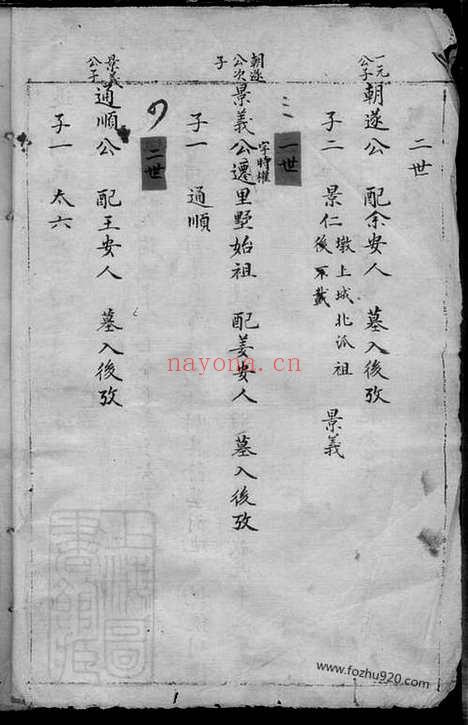 二世
一元公子
朝遂公 配余安人 墓入後攷
子二 景仁 墩上城北派祖後不載 景義
一世
朝遂公次子
景義公遷里墅始祖 配姜安人 墓入後攷
字時權
子一 通順
二世
景義公子
通順公 配王安人 墓入後攷
子一 太六
nayona.cn
www.fozhu920.com